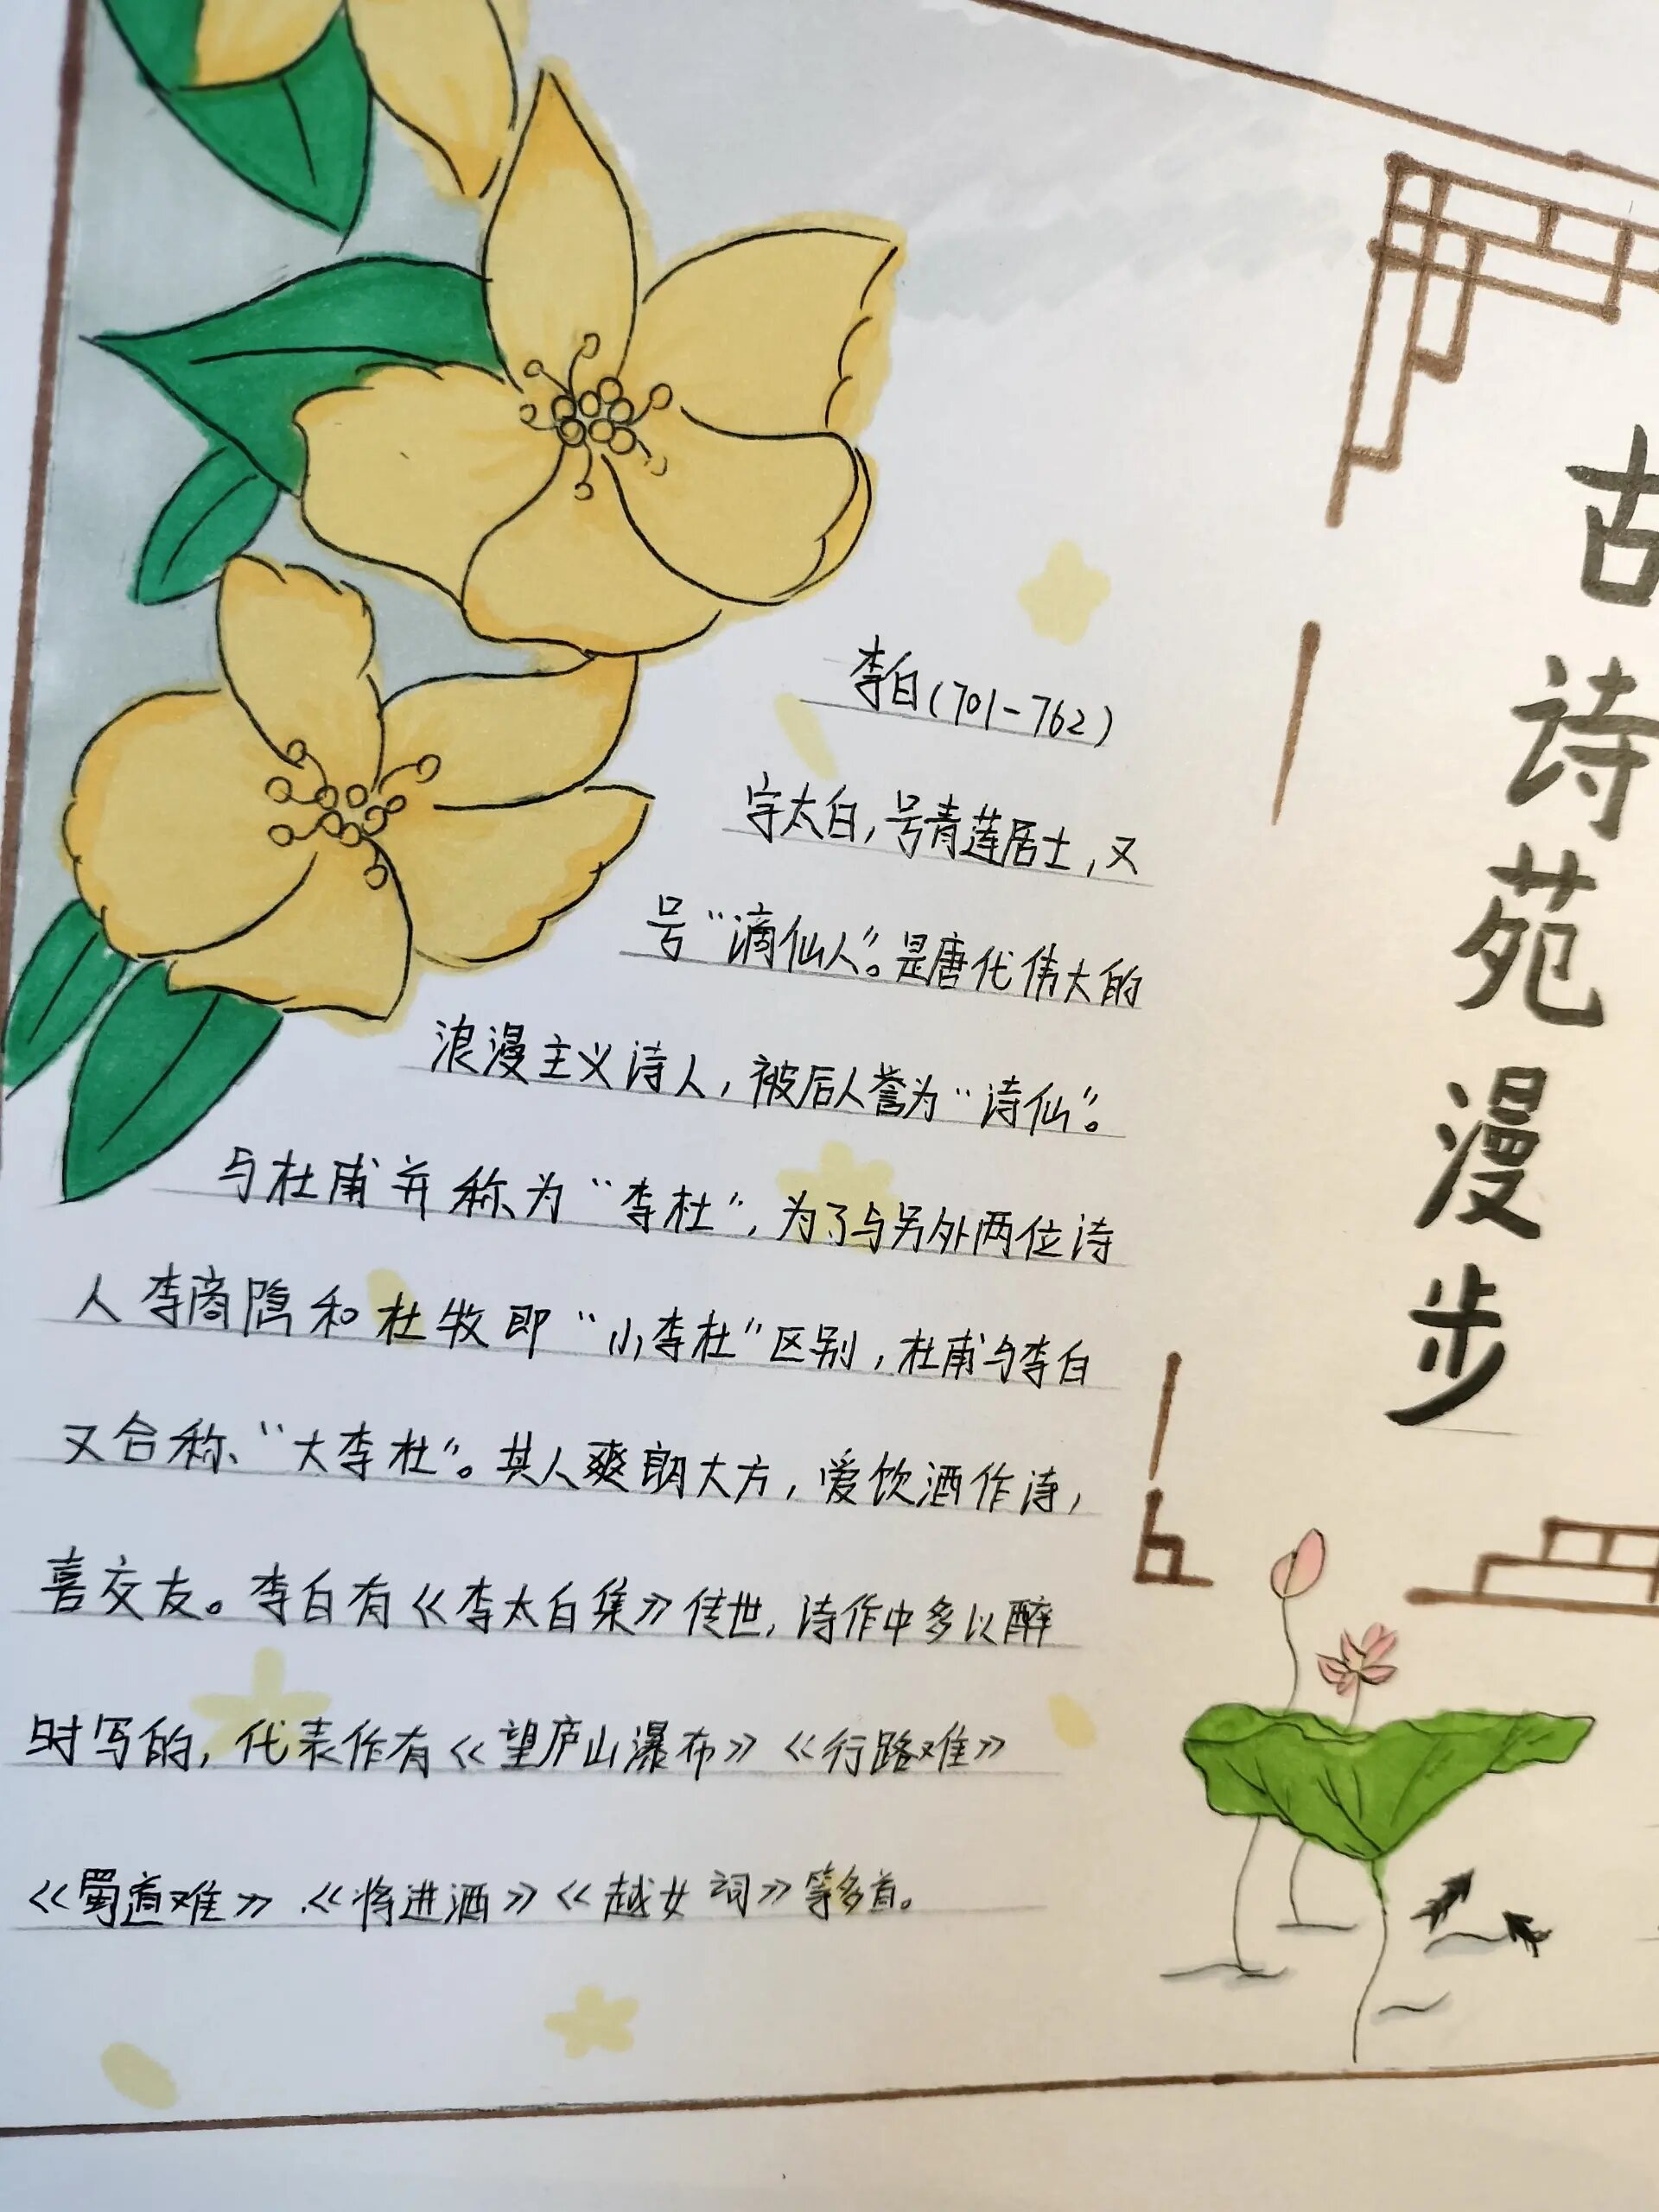 古诗苑漫步
李白(701-762)
字太白,号青莲居士,又
号“滴仙人”。是唐代伟大的
浪漫主义诗人,被后人誉为“诗仙”。
与杜甫并称为“李杜”,为了与另外两位诗
人李商隐和杜牧即“小李杜”区别,杜甫与李白
又合称、“大李杜”。其人爽朗大方,爱饮酒作诗,
喜交友。李白有《李太白集》传世,诗作中多以醉
时写的,代表作有《望庐山瀑布》《行路难》
《蜀道难》.《将进酒》《越女词》等多首。